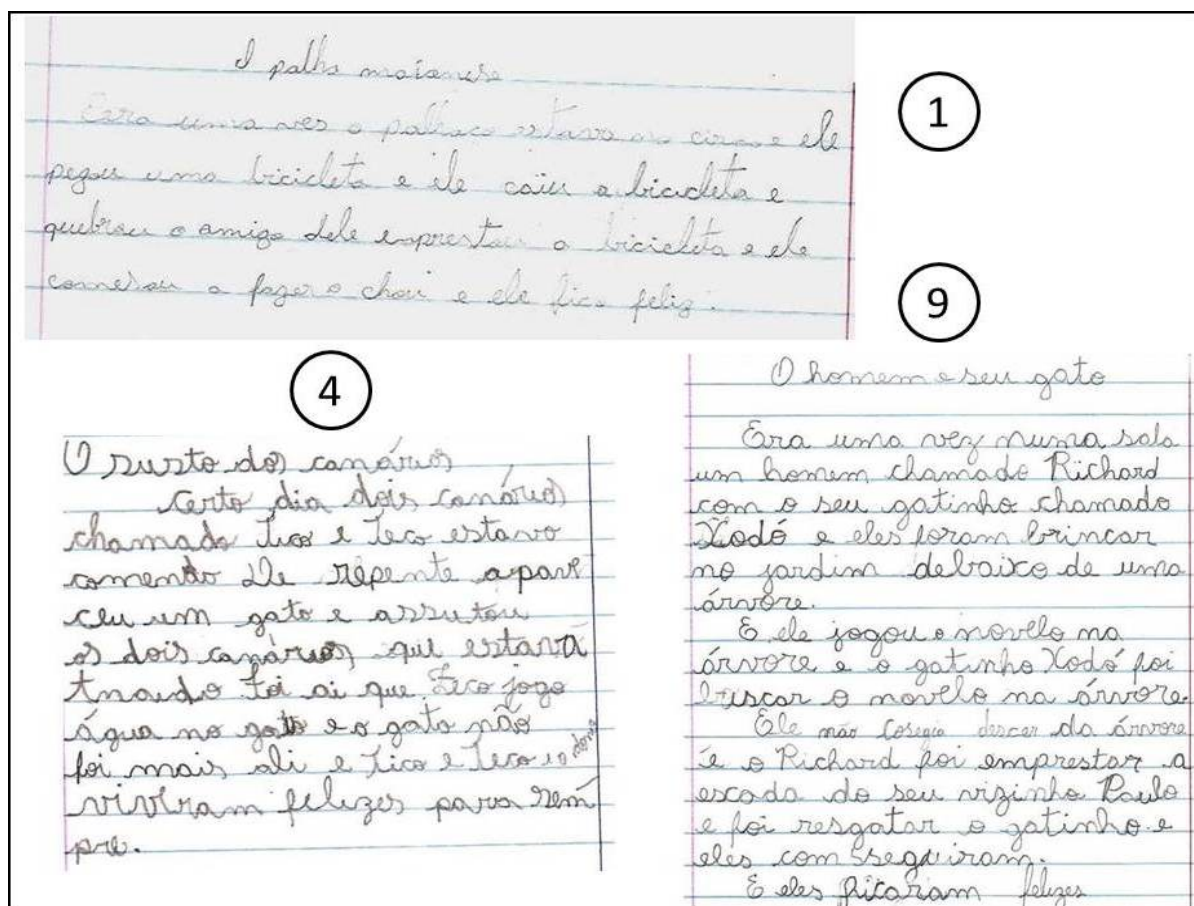 O palha maionese
Eera uma ves o palhaco estava no circo e ele
pegou uma bicicleta e ele caiu a bicicleta e
quebrou o amigo dele emprestou a bicicleta e ele
comesou a fazer o chou e ele fico feliz.
1
9
4
O susto dos canários
Certo dia dois canários
chamado Tico e Teco estavo
comendo De repente apare
ceu um gato e assutou
os dois canários, que estavã
foi ai que Teco jogo
água no gato e o gato não
foi mais ali e Tico e Teco e o dono
viviram felizes para sem
pre.
O homem e seu gato
Era uma vez numa sala
um homem chamado Richard
com o seu gatinho chamado
Xodó e eles foram brincar
no jardim debaixo de uma
árvore.
E ele jogou o novelo na
árvore e o gatinho Xodó foi
buscar o novelo na árvore.
Ele não cosegio descer da árvore
e o Richard foi emprestar a
escada do seu vizinho Paulo
e foi resgatar o gatinho e
eles com sseguiram.
E eles ficaram felizes